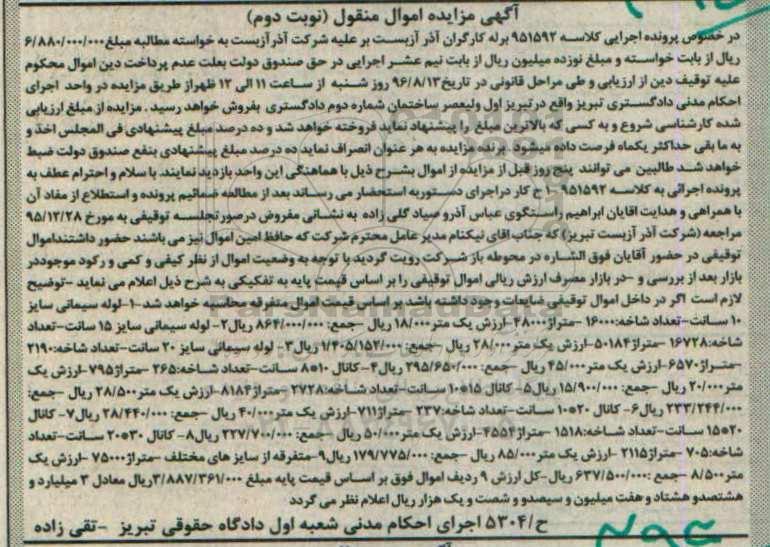 آگهی مزایده اموال منقول (نوبت دوم)
در خصوص پرونده اجرایی کلاسه ۹۵۱۵۹۲ برله کارگران آذر آزبست بر علیه شرکت آذرآزبست به خواسته مطالبه مبلغ ۶/۸۸۰/۰۰۰/۰۰۰
ریال از بابت خواسته و مبلغ نوزده میلیون ریال از بابت نیم عشر اجرایی در حق صندوق دولت بعلت عدم پرداخت دین اموال محکوم
علیه توقیف دین از ارزیابی و طی مراحل قانونی در تاریخ ۹۶/۸/۱۳ روز شنبه از ساعت ۱۱ الی ۱۲ ظهر از طریق مزایده در واحد اجرای
احکام مدنی دادگستری تبریز واقع در تبریز اول ولیعصر ساختمان شماره دوم دادگستری بفروش خواهد رسید . مزایده از مبلغ ارزیابی
شده کارشناسی شروع و به کسی که بالاترین مبلغ را پیشنهاد نماید فروخته خواهد شد و ده درصد مبلغ پیشنهادی فی المجلس اخذ و
به ما بقی حداکثر یکماه فرصت داده میشود برنده مزایده به هر عنوان انصراف نماید ده درصد مبلغ پیشنهادی بنفع صندوق دولت ضبط
خواهد شد طالبین می توانند پنج روز قبل از مزایده از اموال بشرح ذیل با هماهنگی این واحد بازدید نمایند. با سلام و احترام عطف به
پرونده اجرائی به کلاسه ۹۵۱۵۹۲-۱ ح کار در اجرای دستور به استحضار می رساند بعد از مطالعه ضمائیم پرونده و استطلاع از مفاد آن
با همراهی و هدایت اقایان ابراهیم راستگوی عباس آذرو صیاد گلی زاده به نشانی مفروض در صورتجلسه توقیفی به مورخ ۹۵/۱۲/۲۸
مراجعه (شرکت آذر آزبست تبریز) که جناب اقای نیکنام مدیر عامل محترم شرکت که حافظ امین اموال نیز می باشند حضور داشتنداموال
توقیفی در حضور آقایان فوق الشاره در محوطه باز شرکت رویت گردید با توجه به وضعیت اموال از نظر کیفی و کمی و رکود موجود در
بازار بعد از بررسی و -در بازار مصرف ارزش ریالی اموال توقیفی را بر اساس قیمت پایه به تفکیکی به شرح ذیل اعلام می نماید -توضیح
لازم است اگر در داخل اموال توقیفی ضایعات وجود داشته باشد بر اساس قیمت اموال متفرقه محاسبه خواهد شد-۱-لوله سیمانی سایز
۱۰ سانت-تعداد شاخه:۱۶۰۰۰ -متراژ۴۸۰۰۰-ارزش یک متر۱۸/۰۰۰ ریال -جمع: ۸۶۴/۰۰۰/۰۰۰ ریال۲- لوله سیمانی سایز ۱۵ سانت-تعداد
شاخه:۱۶۷۲۸ -متراژ۵۰۱۸۴-ارزش یک متر۲۸/۰۰۰ ریال -جمع: ۱/۴۰۵/۱۵۲/۰۰۰ریال۳- لوله سیمانی سایز ۲۰ سانت-تعداد شاخه:۲۱۹۰
-متراژ۶۵۷۰-ارزش یک متر۴۵/۰۰۰ ریال -جمع: ۲۹۵/۶۵۰/۰۰۰ ریال۴- کانال ۱۰*۸ سانت-تعداد شاخه:۲۶۵ -متراژ۷۹۵-ارزش یک
متر۲۰/۰۰۰ ریال -جمع: ۱۵/۹۰۰/۰۰۰ ریال۵- کانال ۱۵*۱۰ سانت-تعداد شاخه:۲۷۲۸ -متراژ۸۱۸۴-ارزش یک متر۲۸/۵۰۰ ریال -جمع:
۲۳۳/۲۴۴/۰۰۰ ریال۶- کانال ۲۰*۱۰ سانت-تعداد شاخه:۲۳۷ -متراژ۷۱۱-ارزش یک متر۴۰/۰۰۰ ریال -جمع: ۲۸/۴۴۰/۰۰۰ ریال۷- کانال
۲۰*۱۵ سانت-تعداد شاخه:۱۵۱۸ -متراژ۴۵۵۴-ارزش یک متر۵۰/۰۰۰ ریال -جمع: ۲۲۷/۷۰۰/۰۰۰ ریال۸- کانال ۳۰*۲۰ سانت-تعداد
شاخه:۷۰۵ -متراژ۲۱۱۵ -ارزش یک متر۸۵/۰۰۰ ریال -جمع: ۱۷۹/۷۷۵/۰۰۰ ریال۹-متفرقه از سایز های مختلف -متراژ۷۵۰۰۰ -ارزش یک
متر۸/۵۰۰ -جمع :۶۳۷/۵۰۰/۰۰۰ ریال-کل ارزش ۹ ردیف اموال فوق بر اساس قیمت پایه مبلغ ۳/۸۸۷/۳۶۱/۰۰۰ریال معادل ۳ میلیارد و
هشتصدو هشتاد و هفت میلیون و سیصدو و شصت و یک هزار ریال اعلام نظر می گردد
ح/۵۳۰۴ اجرای احکام مدنی شعبه اول دادگاه حقوقی تبریز -تقی زاده